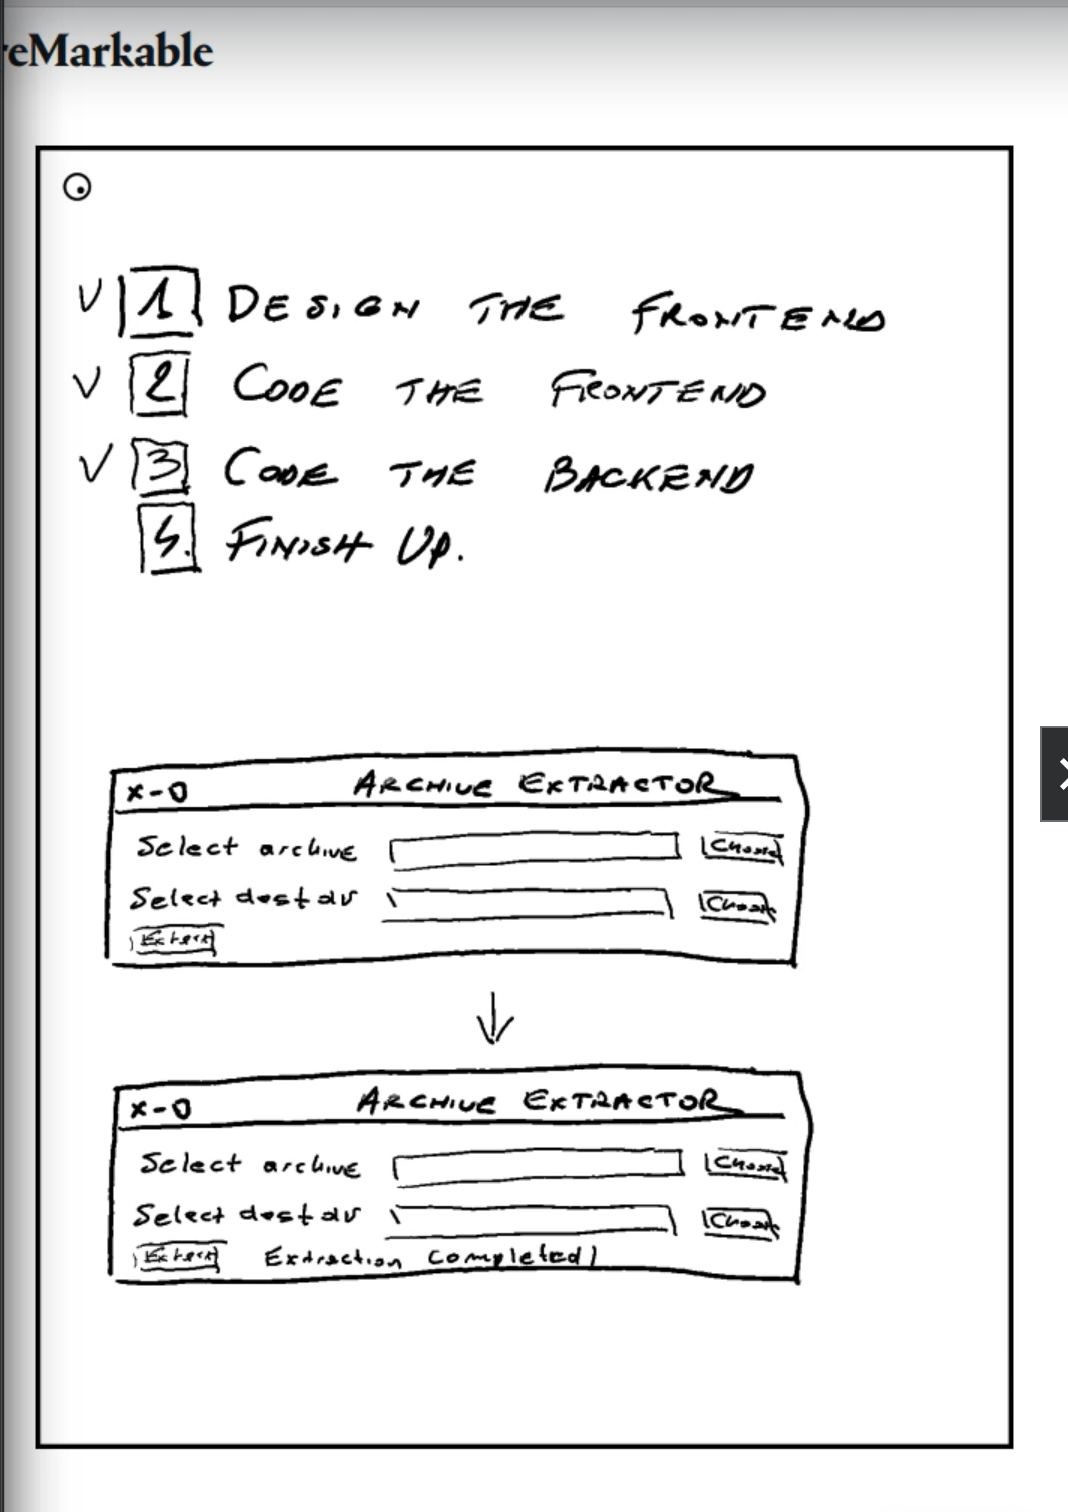 reMarkable
V 1 DESIGN THE FRONTEND
V 2 CODE THE FRONTEND
V 3 CODE THE BACKEND
4. FINISH UP.
x-o ARCHIVE EXTRACTOR
Select archive Choose
Select dest dir Choose
Extract
x-o ARCHIVE EXTRACTOR
Select archive Choose
Select dest dir Choose
Extract Extraction completed!